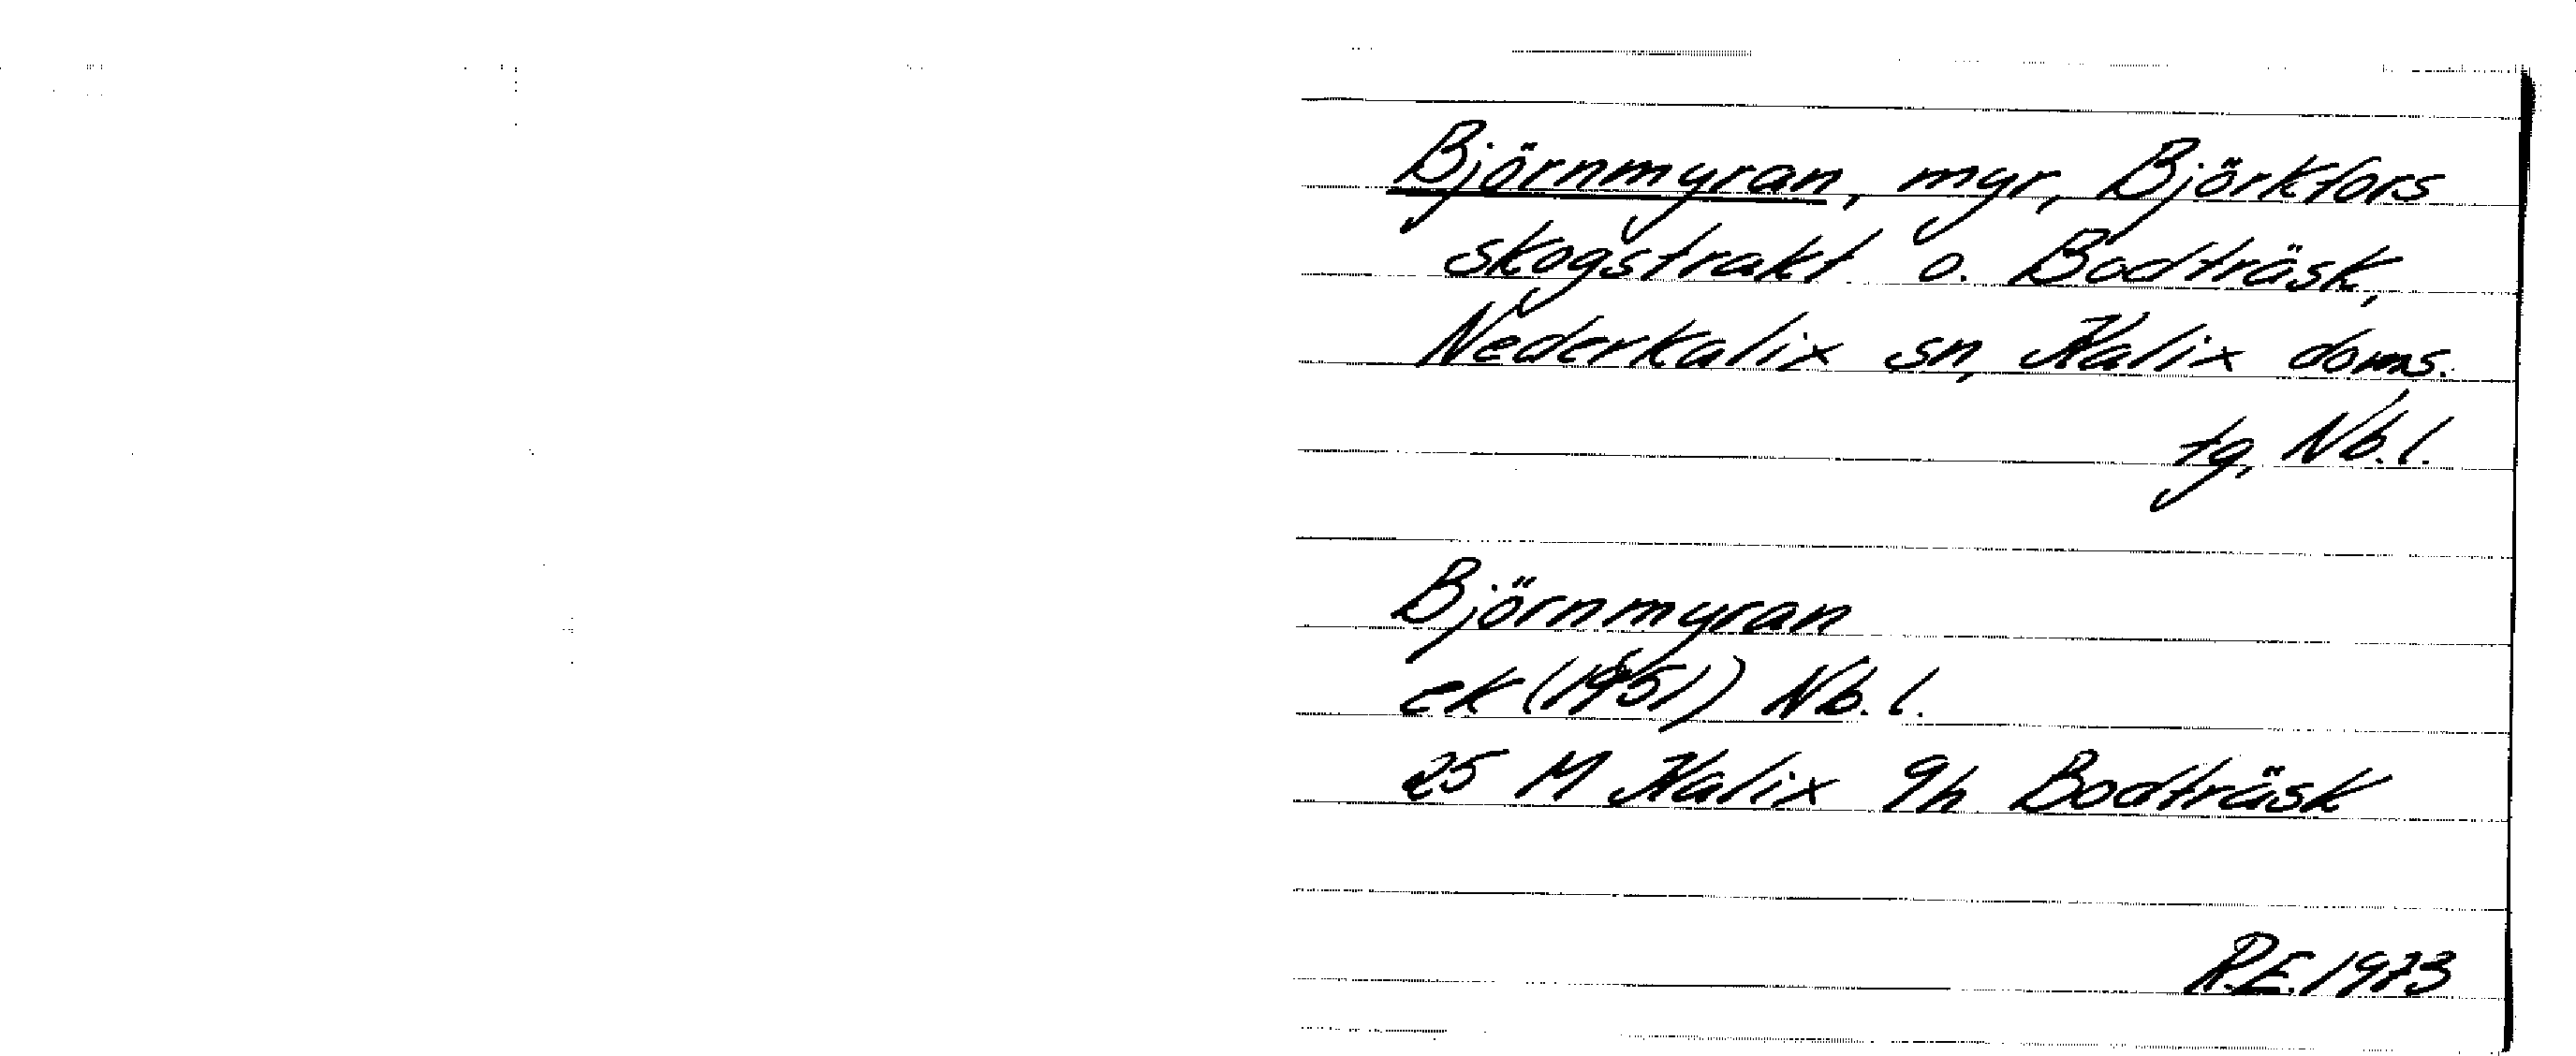 Björnmyran, myr, Björkfors
skogstrakt o. Bodträsk,
Nederkalix sn, Kalix doms.
tg, Nb.l.
Björnmyran
ek (1951) Nb.l.
25 M Kalix 9h Bodträsk
R.E. 1973